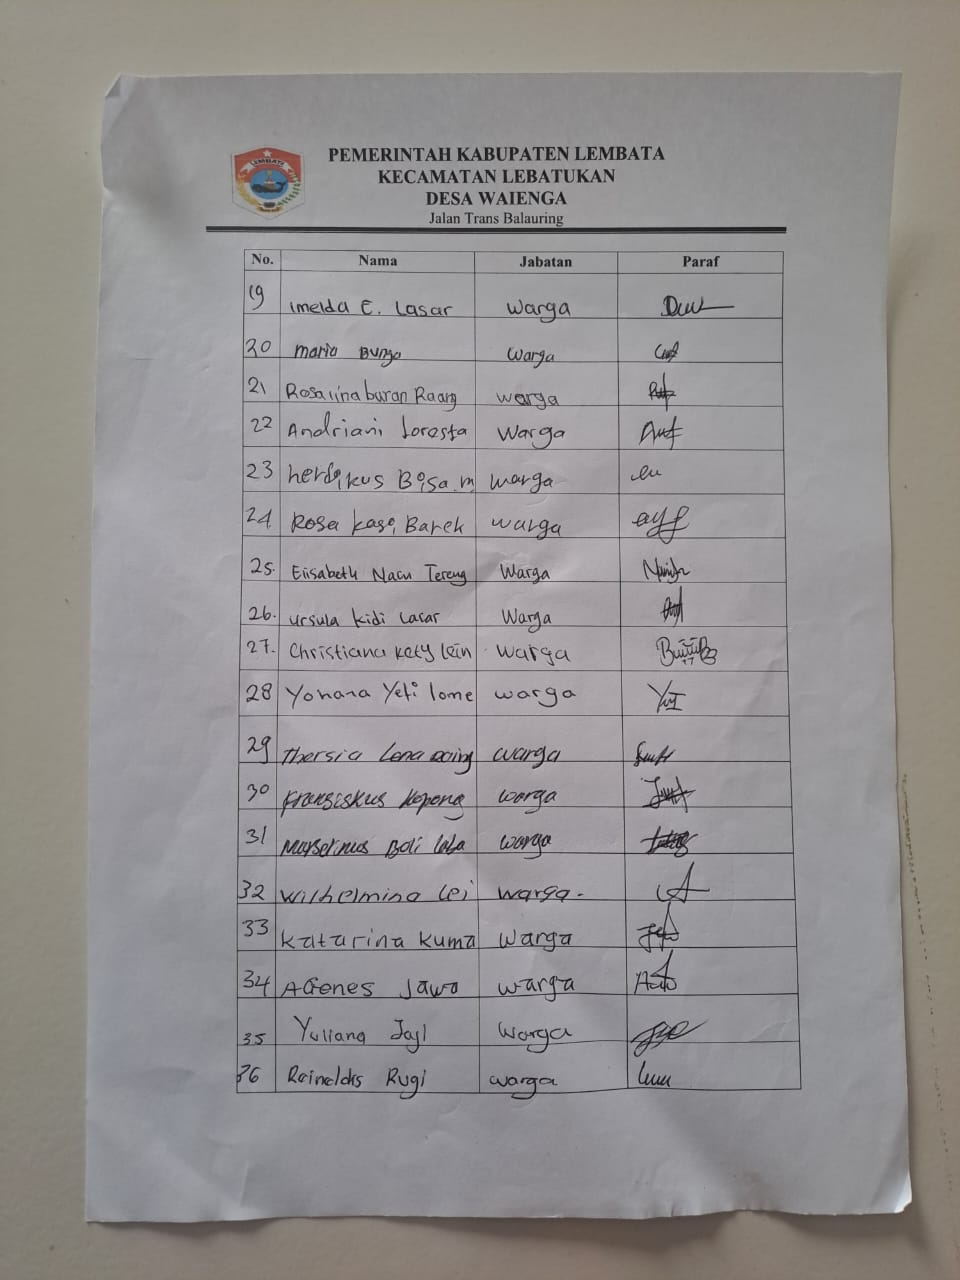 LEMBATA
PEMERINTAH KABUPATEN LEMBATA
KECAMATAN LEBATUKAN
DESA WAIENGA
Jalan Trans Balauring
No. Nama Jabatan Paraf
19 Imelda E. Lasar Warga
20 Maria Bunga Warga
21 Rosalina buran Raang warga
22 Andriani Loresta Warga
23 herdikus Bisa.m warga
24 Rosa kasi Barek warga
25. Elisabeth Nacu Tereng Warga
26. ursula kidi Lasar Warga
27. Christiana Kety Lein warga
28 Yohana Yeti lome warga
29 Thersia Lena warga
30 Fransiskus Kopong warga
31 Marselinus Boli laba warga
32 Wilhelmina Lei warga.
33 Katarina Kuma warga
34 AGenes Jawa warga
35 Yuliana warga
36 Reineldis Rugi warga